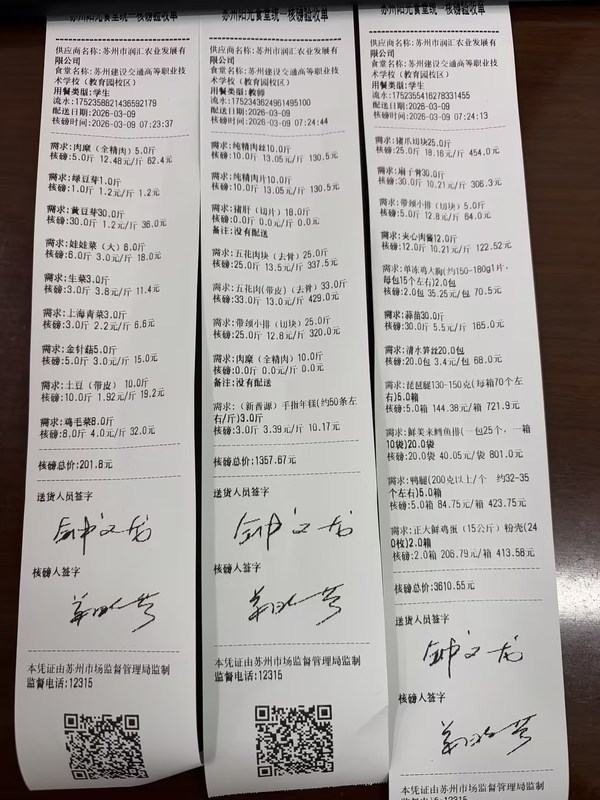 苏州阳光食堂统一核磅验收单
供应商名称:苏州市润汇农业发展有
限公司
食堂名称:苏州建设交通高等职业技
术学校（教育园校区）
用餐类型:学生
流水:1752358821436592179
配送日期:2026-03-09
核磅时间:2026-03-09 07:23:37
需求:肉糜（全精肉）5.0斤
核磅:5.0斤 12.48元/斤 62.4元
需求:绿豆芽1.0斤
核磅:1.0斤 1.2元/斤 1.2元
需求:黄豆芽30.0斤
核磅:30.0斤 1.2元/斤 36.0元
需求:娃娃菜（大）6.0斤
核磅:6.0斤 3.0元/斤 18.0元
需求:生菜3.0斤
核磅:3.0斤 3.8元/斤 11.4元
需求:上海青菜3.0斤
核磅:3.0斤 2.2元/斤 6.6元
需求:金针菇5.0斤
核磅:5.0斤 3.0元/斤 15.0元
需求:土豆（带皮） 10.0斤
核磅:10.0斤 1.92元/斤 19.2元
需求:鸡毛菜8.0斤
核磅:8.0斤 4.0元/斤 32.0元
核磅总价:201.8元
送货人员签字
钟文龙
核磅人签字
本凭证由苏州市场监督管理局监制
监督电话:12315
苏州阳光食堂统一核磅验收单
供应商名称:苏州市润汇农业发展有
限公司
食堂名称:苏州建设交通高等职业技
术学校（教育园校区）
用餐类型:教师
流水:1752343624961495100
配送日期:2026-03-09
核磅时间:2026-03-09 07:24:44
需求:纯精肉丝10.0斤
核磅:10.0斤 13.05元/斤 130.5元
需求:纯精肉片10.0斤
核磅:10.0斤 13.05元/斤 130.5元
需求:猪肝（切片）18.0斤
核磅:0.0斤 0.0元/斤 0.0元
备注:没有配送
需求:五花肉块（去骨）25.0斤
核磅:25.0斤 13.5元/斤 337.5元
需求:五花肉(带皮)(去骨）33.0斤
核磅:33.0斤 13.0元/斤 429.0元
需求:带颈小排（切块）25.0斤
核磅:25.0斤 12.8元/斤 320.0元
需求:肉糜（全精肉）10.0斤
核磅:0.0斤 0.0元/斤 0.0元
备注:没有配送
需求:（新西源）手指年糕(约50条左
右/斤)3.0斤
核磅:3.0斤 3.39元/斤 10.17元
核磅总价:1357.67元
送货人员签字
钟文龙
核磅人签字
本凭证由苏州市场监督管理局监制
监督电话:12315
苏州阳光食堂统一核磅验收单
供应商名称:苏州市润汇农业发展有
限公司
食堂名称:苏州建设交通高等职业技
术学校（教育园校区）
用餐类型:学生
流水:1752355416278331455
配送日期:2026-03-09
核磅时间:2026-03-09 07:24:13
需求:猪爪切块25.0斤
核磅:25.0斤 18.16元/斤 454.0元
需求:扇子骨30.0斤
核磅:30.0斤 10.21元/斤 306.3元
需求:带颈小排（切块）5.0斤
核磅:5.0斤 12.8元/斤 64.0元
需求:夹心肉酱12.0斤
核磅:12.0斤 10.21元/斤 122.52元
需求:单冻鸡大胸(约150-180g1片，
每包15个左右)2.0包
核磅:2.0包 35.25元/包 70.5元
需求:蒜苗30.0斤
核磅:30.0斤 5.5元/斤 165.0元
需求:清水笋丝20.0包
核磅:20.0包 3.4元/包 68.0元
需求:琵琶腿130-150克(每箱70个左
右)5.0箱
核磅:5.0箱 144.38元/箱 721.9元
需求:鲜美来鳕鱼排（一包25个，一箱
10袋)20.0袋
核磅:20.0袋 40.05元/袋 801.0元
需求:鸭腿(200克以上/个 约32-35
个左右)5.0箱
核磅:5.0箱 84.75元/箱 423.75元
需求:正大鲜鸡蛋（15公斤）粉壳(24
0枚)2.0箱
核磅:2.0箱 206.79元/箱 413.58元
核磅总价:3610.55元
送货人员签字
钟文龙
核磅人签字
本凭证由苏州市场监督管理局监制
监督电话:12315